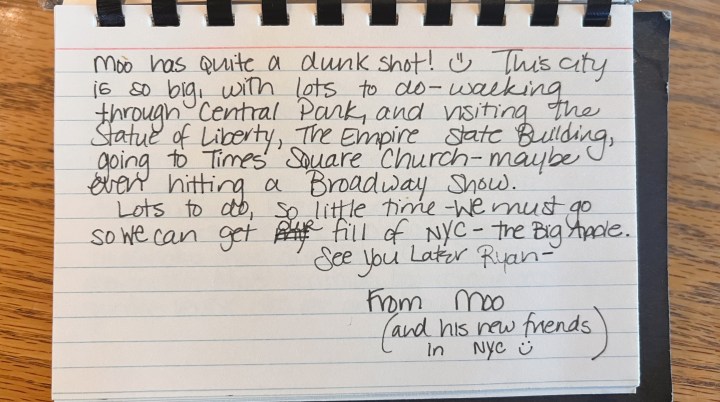 Moo has quite a dunk shot! This city
is so big, with lots to do - walking
through Central Park, and visiting the
Statue of Liberty, The Empire State Building,
going to Times Square Church - maybe
even hitting a Broadway Show.
Lots to do, so little time - we must go
so we can get our fill of NYC - the Big Apple.
See you Later Ryan -
From Moo
(and his new friends
in NYC ☺)